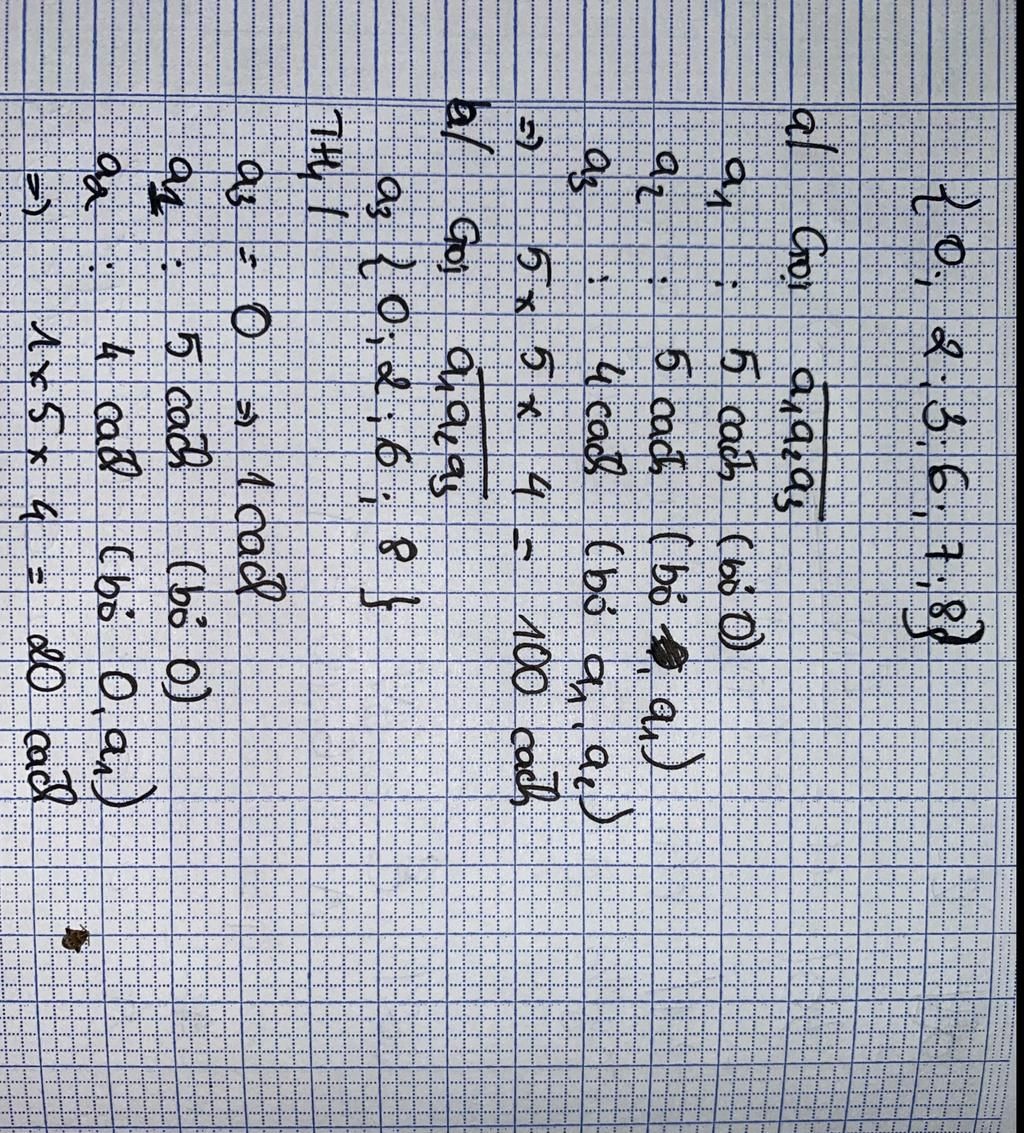 {0; 2; 3; 6; 7; 8}
a/ Gọi a₁a₂a₃
a₁ : 5 cách (bỏ 0)
a₂ : 5 cách (bỏ a₁)
a₃ : 4 cách (bỏ a₁, a₂)
=) 5 x 5 x 4 = 100 cách
b/ Gọi a₁a₂a₃
a₃ {0; 2; 6; 8}
TH₁/
a₃ = 0 => 1 cách
a₁ : 5 cách (bỏ 0)
a₂ : 4 cách (bỏ 0, a₁)
=) 1 x 5 x 4 = 20 cách